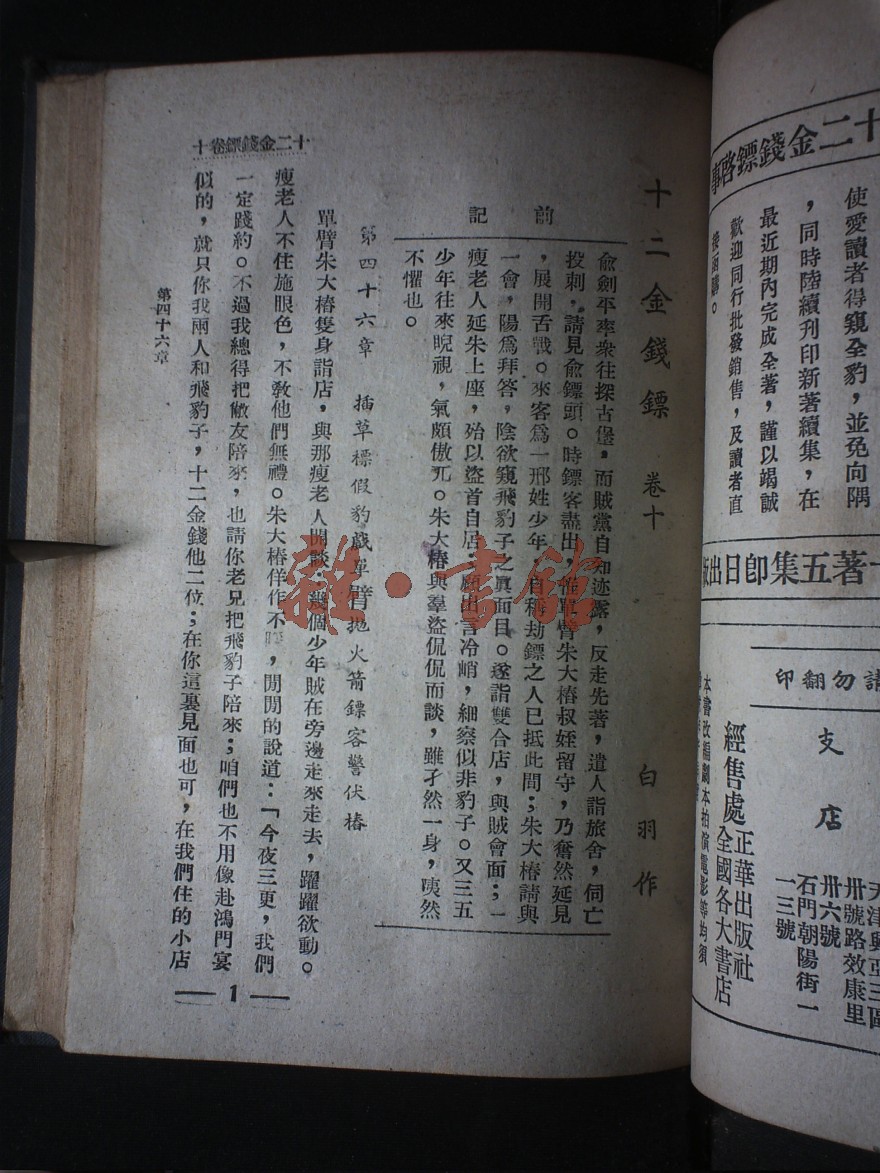 使愛讀者得窺全豹，並免向隅
，同時陸續刊印新著續集，在
最近期內完成全著，謹以竭誠
歡迎同行批發銷售，及讀者直
接函購。
十二金錢鏢啓事
著五集即日出版
請勿翻印
支店
天津興亞三區
卅號路效康里
卅六號
石門朝陽街一
一三號
經售處
正華出版社
全國各大書店
本書改編劇本拍演電影等均須
十二金錢鏢　卷十　白羽作
前記
俞劍平率衆往探古堡，而賊黨自知迹露，反走先著，遣人詣旅舍，伺亡
投刺，請見俞鏢頭。時鏢客盡出，惟單臂朱大椿叔姪留守，乃奮然延見
，展開舌戰。來客爲一邢姓少年，自稱劫鏢之人已抵此間；朱大椿請與
一會，陽爲拜答，陰欲窺飛豹子之眞面目。遂詣雙合店，與賊會面；一
瘦老人延朱上座，殆以盜首自居；顧出言冷峭，細察似非豹子。又三五
少年往來睨視，氣頗傲兀。朱大椿與羣盜侃侃而談，雖孑然一身，夷然
不懼也。
第四十六章　插草標假豹戲單臂　拋火箭鏢客警伏椿
單臂朱大椿隻身詣店，與那瘦老人開談；幾個少年賊在旁邊走來走去，躍躍欲動。
瘦老人不住施眼色，不敎他們無禮。朱大椿佯作不，閒閒的說道：「今夜三更，我們
一定踐約。不過我總得把敝友陪來，也請你老兄把飛豹子陪來；咱們也不用像赴鴻門宴
似的，就只你我兩人和飛豹子，十二金錢他二位；在你這裏見面也可，在我們住的小店
十二金錢鏢卷十
第四十六章
1
雜·書館